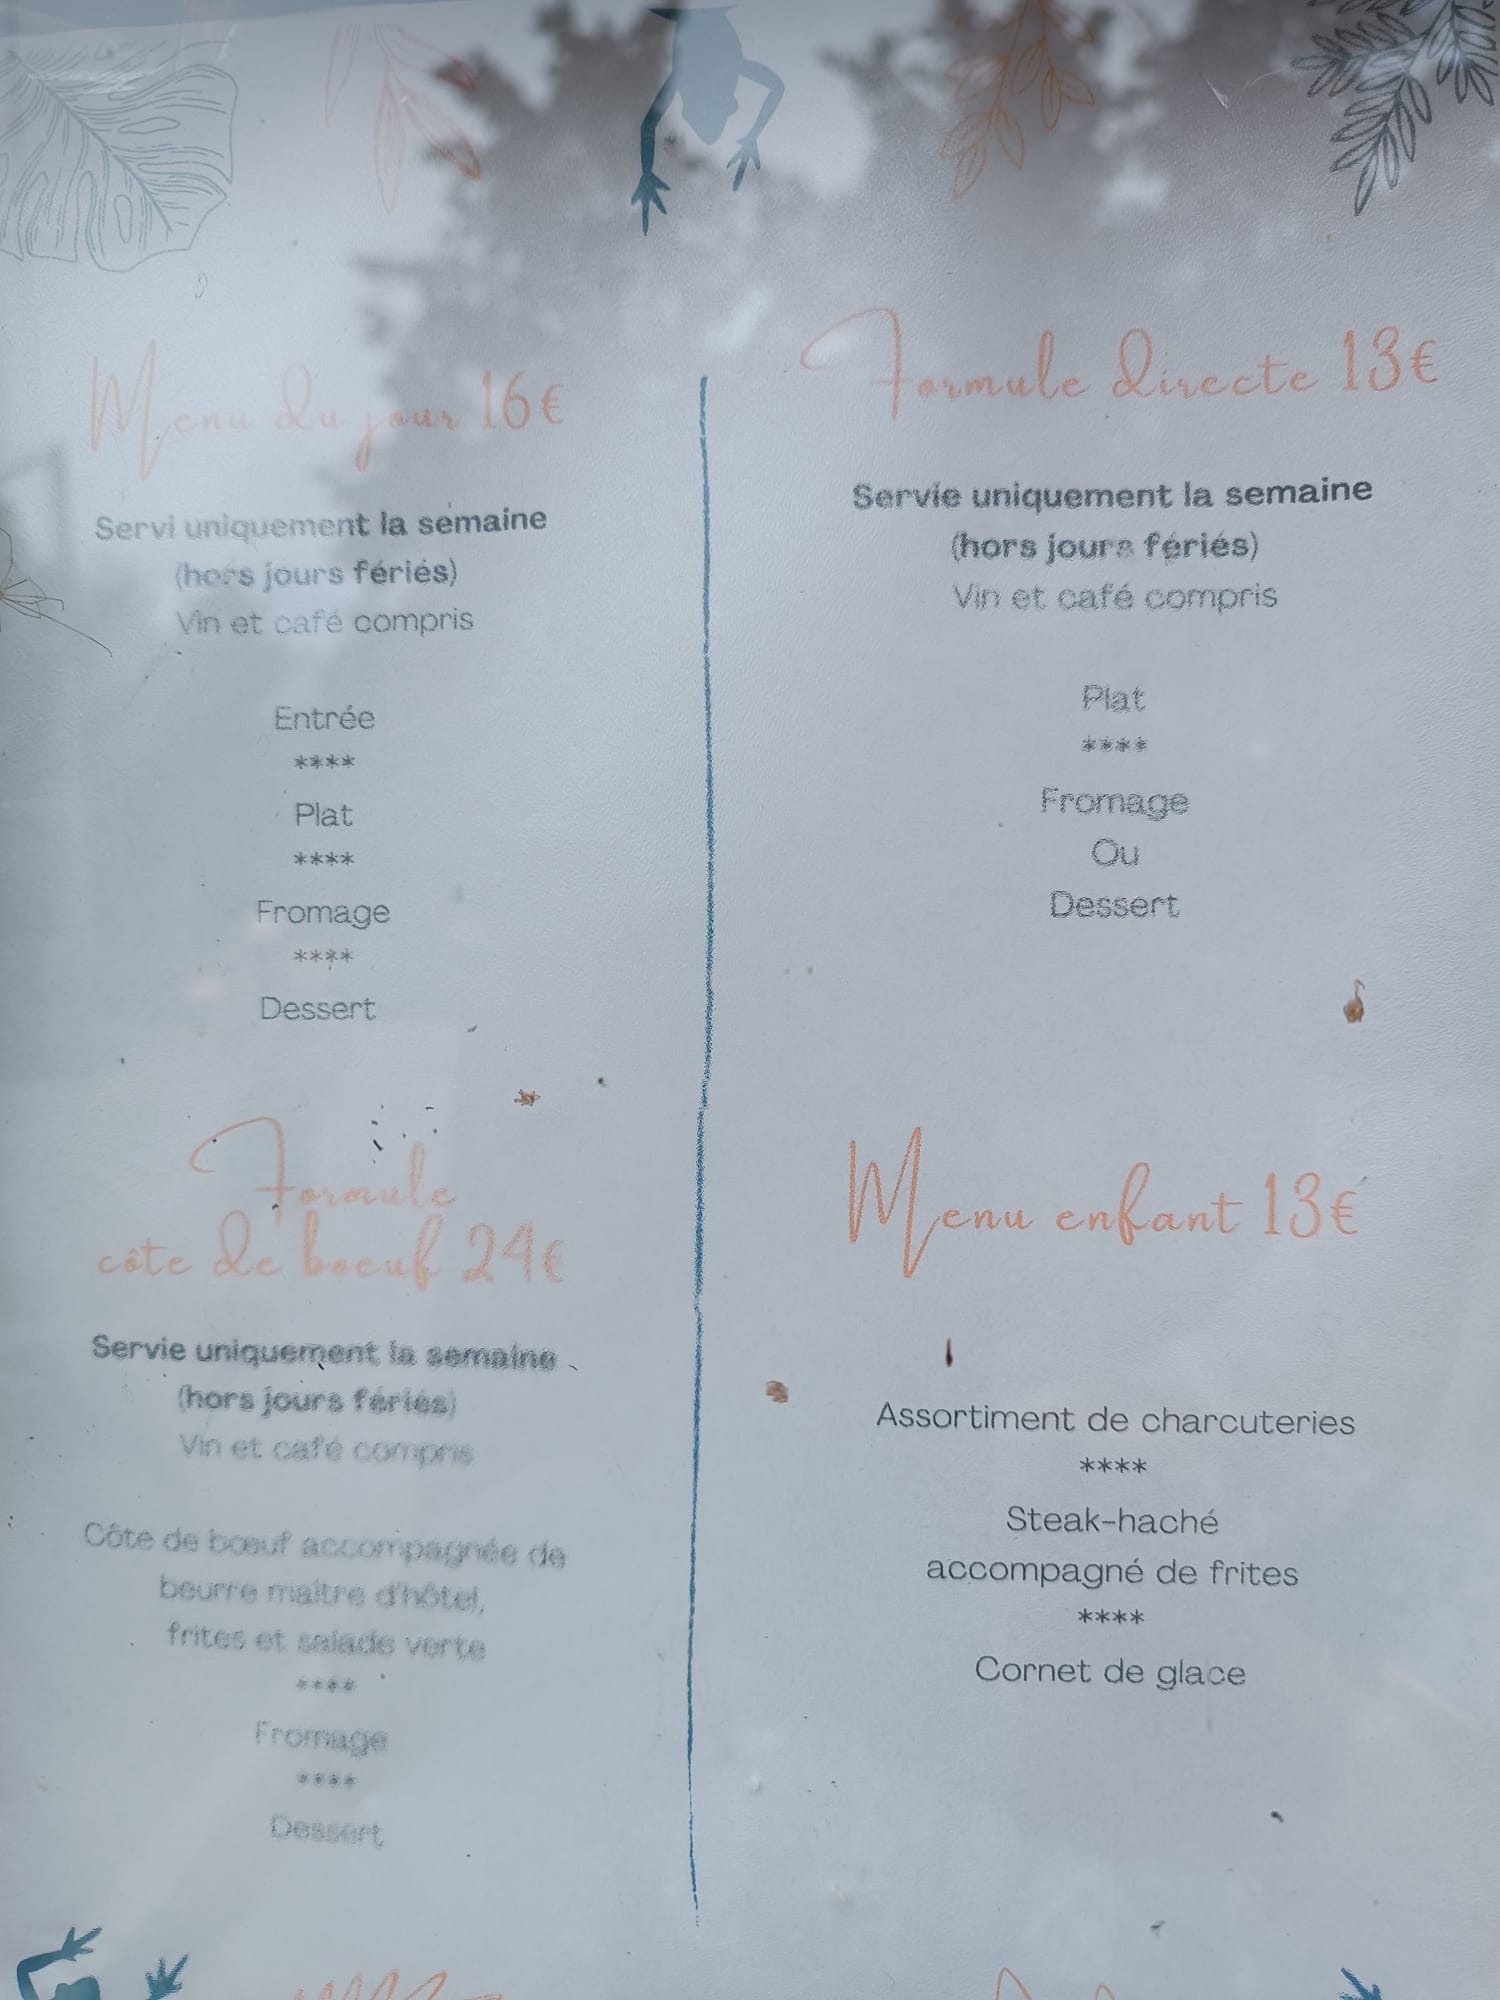 Menu du jour 16€
Servi uniquement la semaine
(hors jours fériés)
Vin et café compris
Entrée
****
Plat
****
Fromage
****
Dessert
Formule
côte de boeuf 24€
Servie uniquement la semaine
(hors jours fériés)
Vin et café compris
Côte de bœuf accompagnée de
beurre maître d'hôtel,
frites et salade verte
****
Fromage
****
Dessert
Formule directe 13€
Servie uniquement la semaine
(hors jours fériés)
Vin et café compris
Plat
****
Fromage
Ou
Dessert
Menu enfant 13€
Assortiment de charcuteries
****
Steak-haché
accompagné de frites
****
Cornet de glace